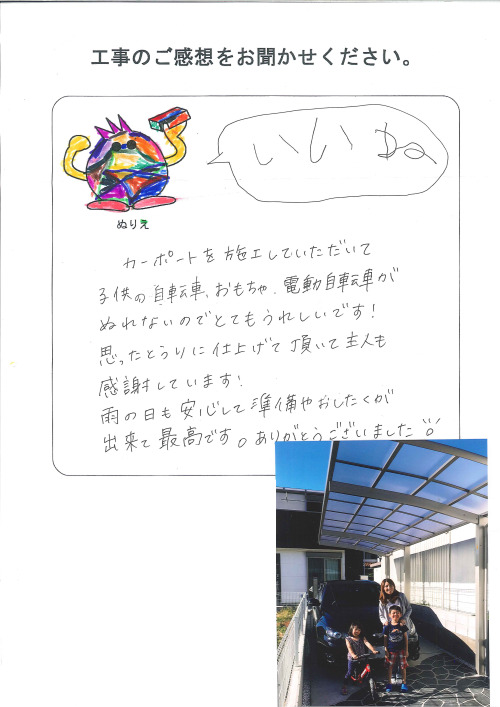 工事のご感想をお聞かせください。
いいね
ぬりえ
カーポートを施工していただいて
子供の自転車、おもちゃ、電動自転車が
ぬれないのでとてもうれしいです!
思ったとうりに仕上げて頂いて主人も
感謝しています!
雨の日も安心して準備やおしたくが
出来て最高です。ありがとうございました